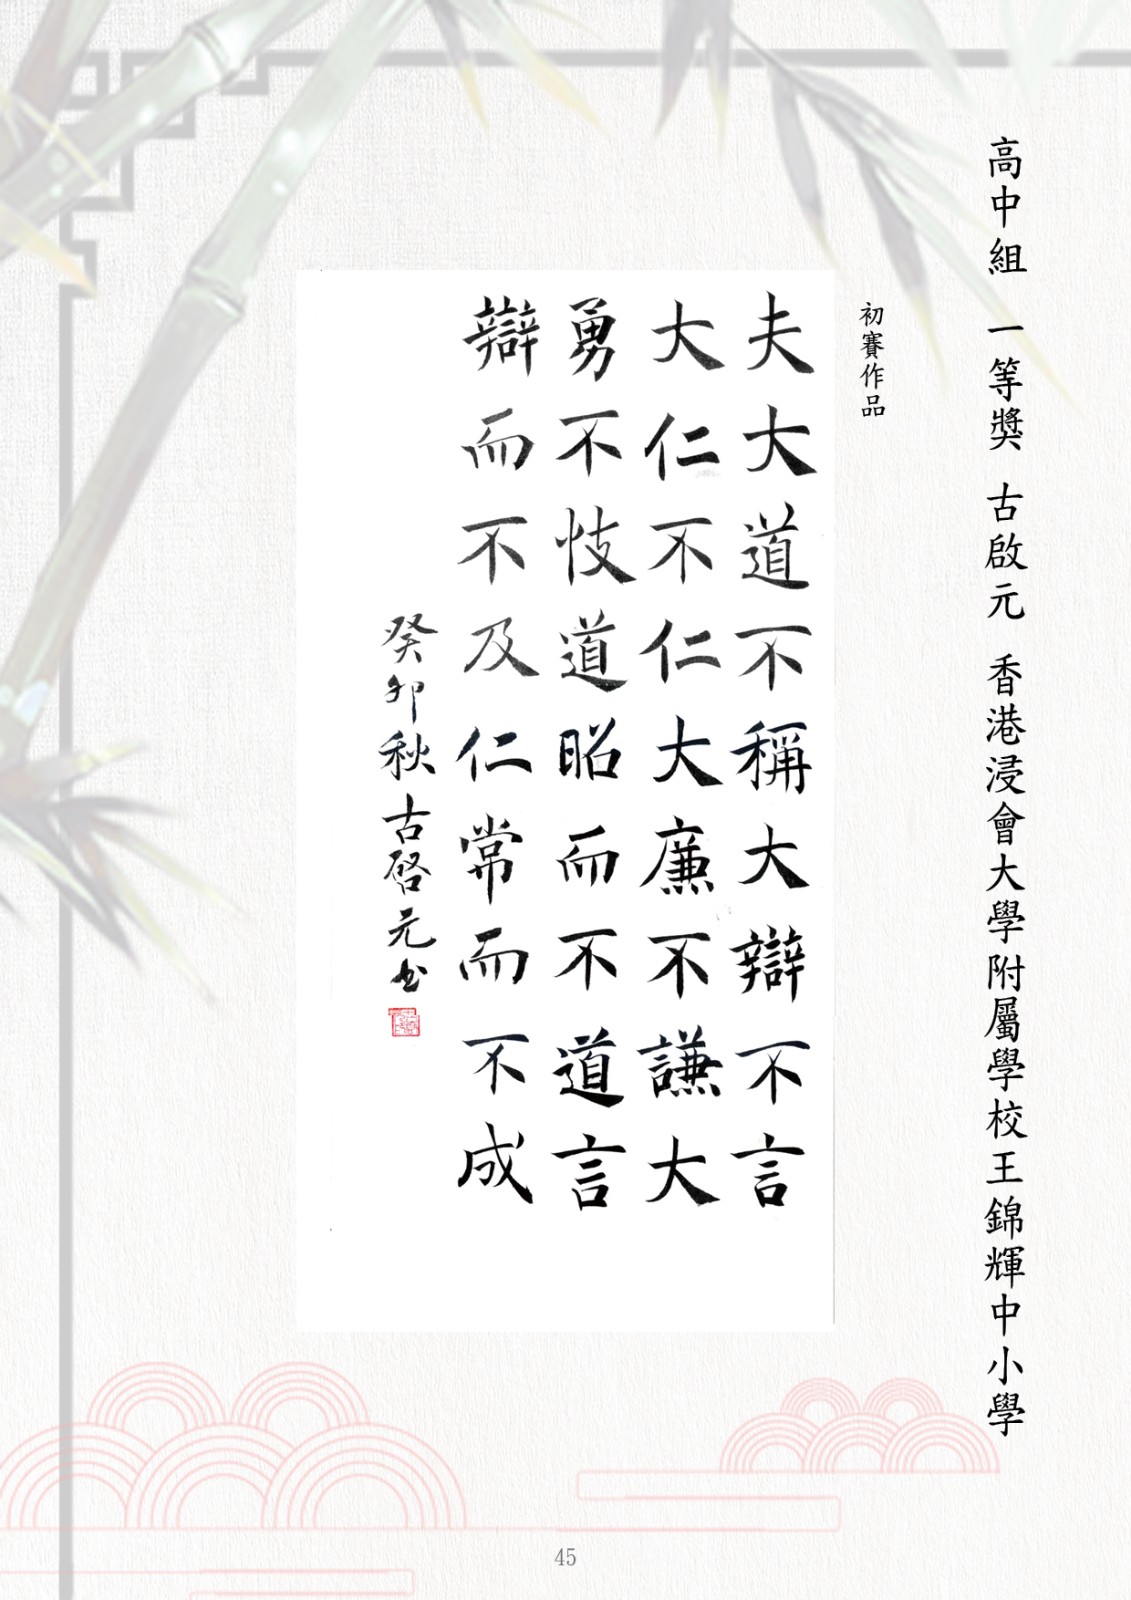 高中組 一等獎 古啟元 香港浸會大學附屬學校王錦輝中小學
初賽作品
夫大道不稱大辯不言
大仁不仁大廉不謙大
勇不忮道昭而不道言
辯而不及仁常而不成
癸卯秋古啓元书
45